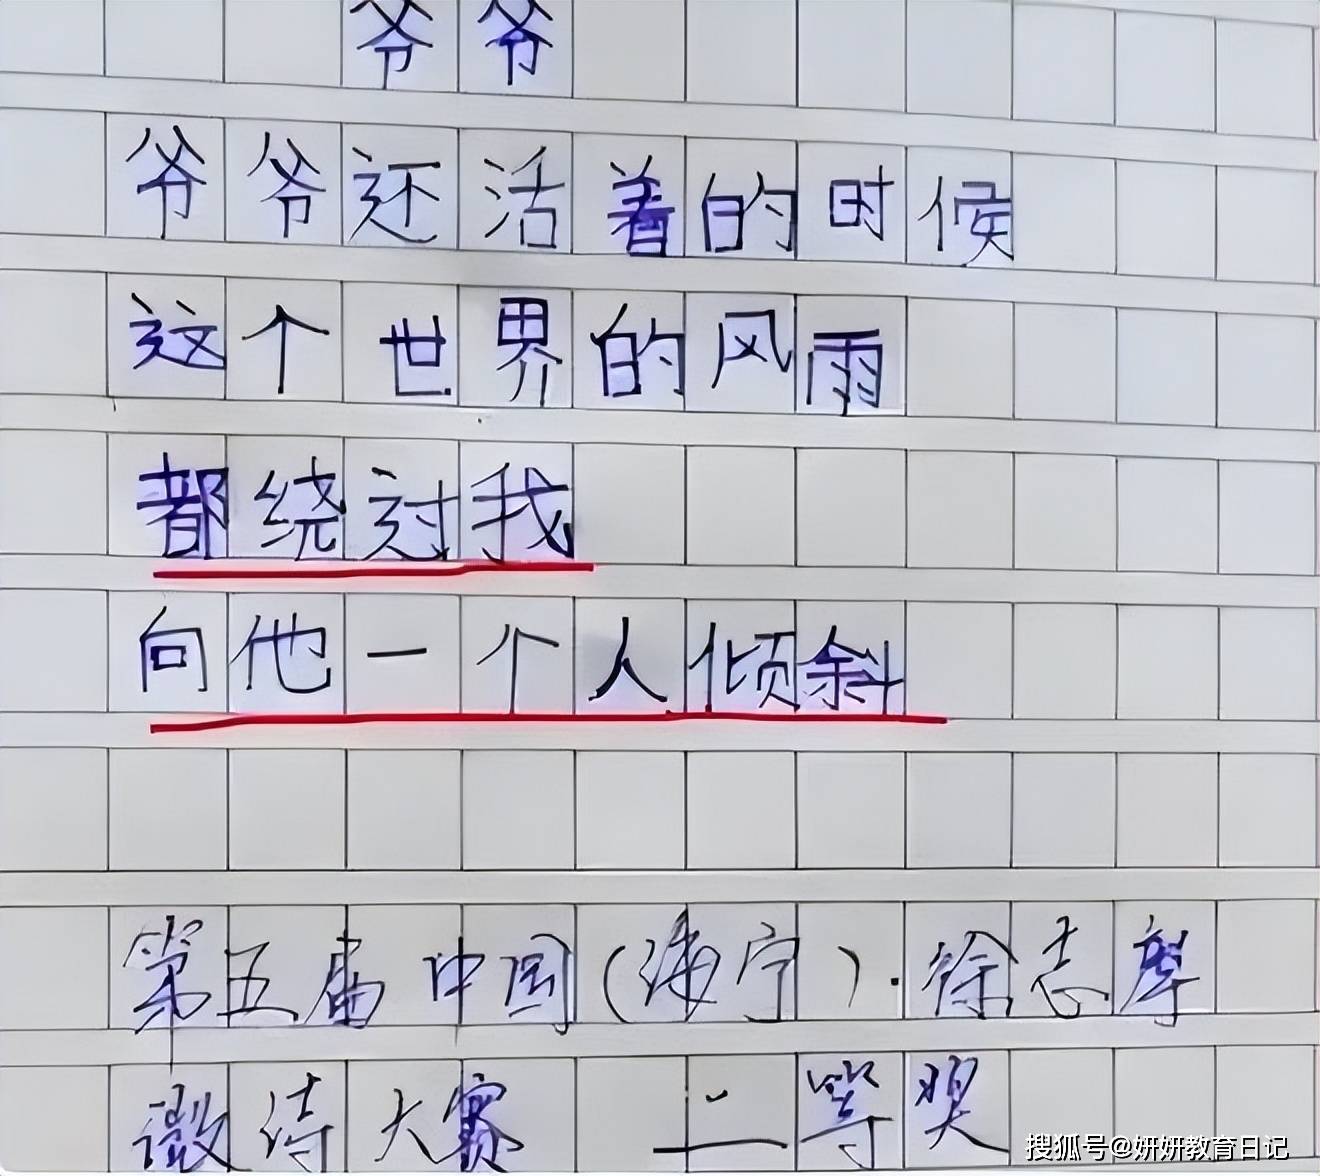 爷爷
爷爷还活着的时候
这个世界的风雨
都绕过我
向他一个人倾斜
第五届中国(海宁)·徐志摩
微诗大赛 二等奖
搜狐号@妍妍教育日记